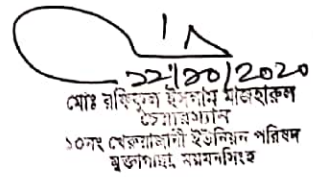 ২২/১০/2020
মোঃ রফিকুল ইসলাম মাজহারুল
চেয়ারম্যান
১০নং খেরুয়াজানী ইউনিয়ন পরিষদ
মুক্তাগাছা, ময়মনসিংহ